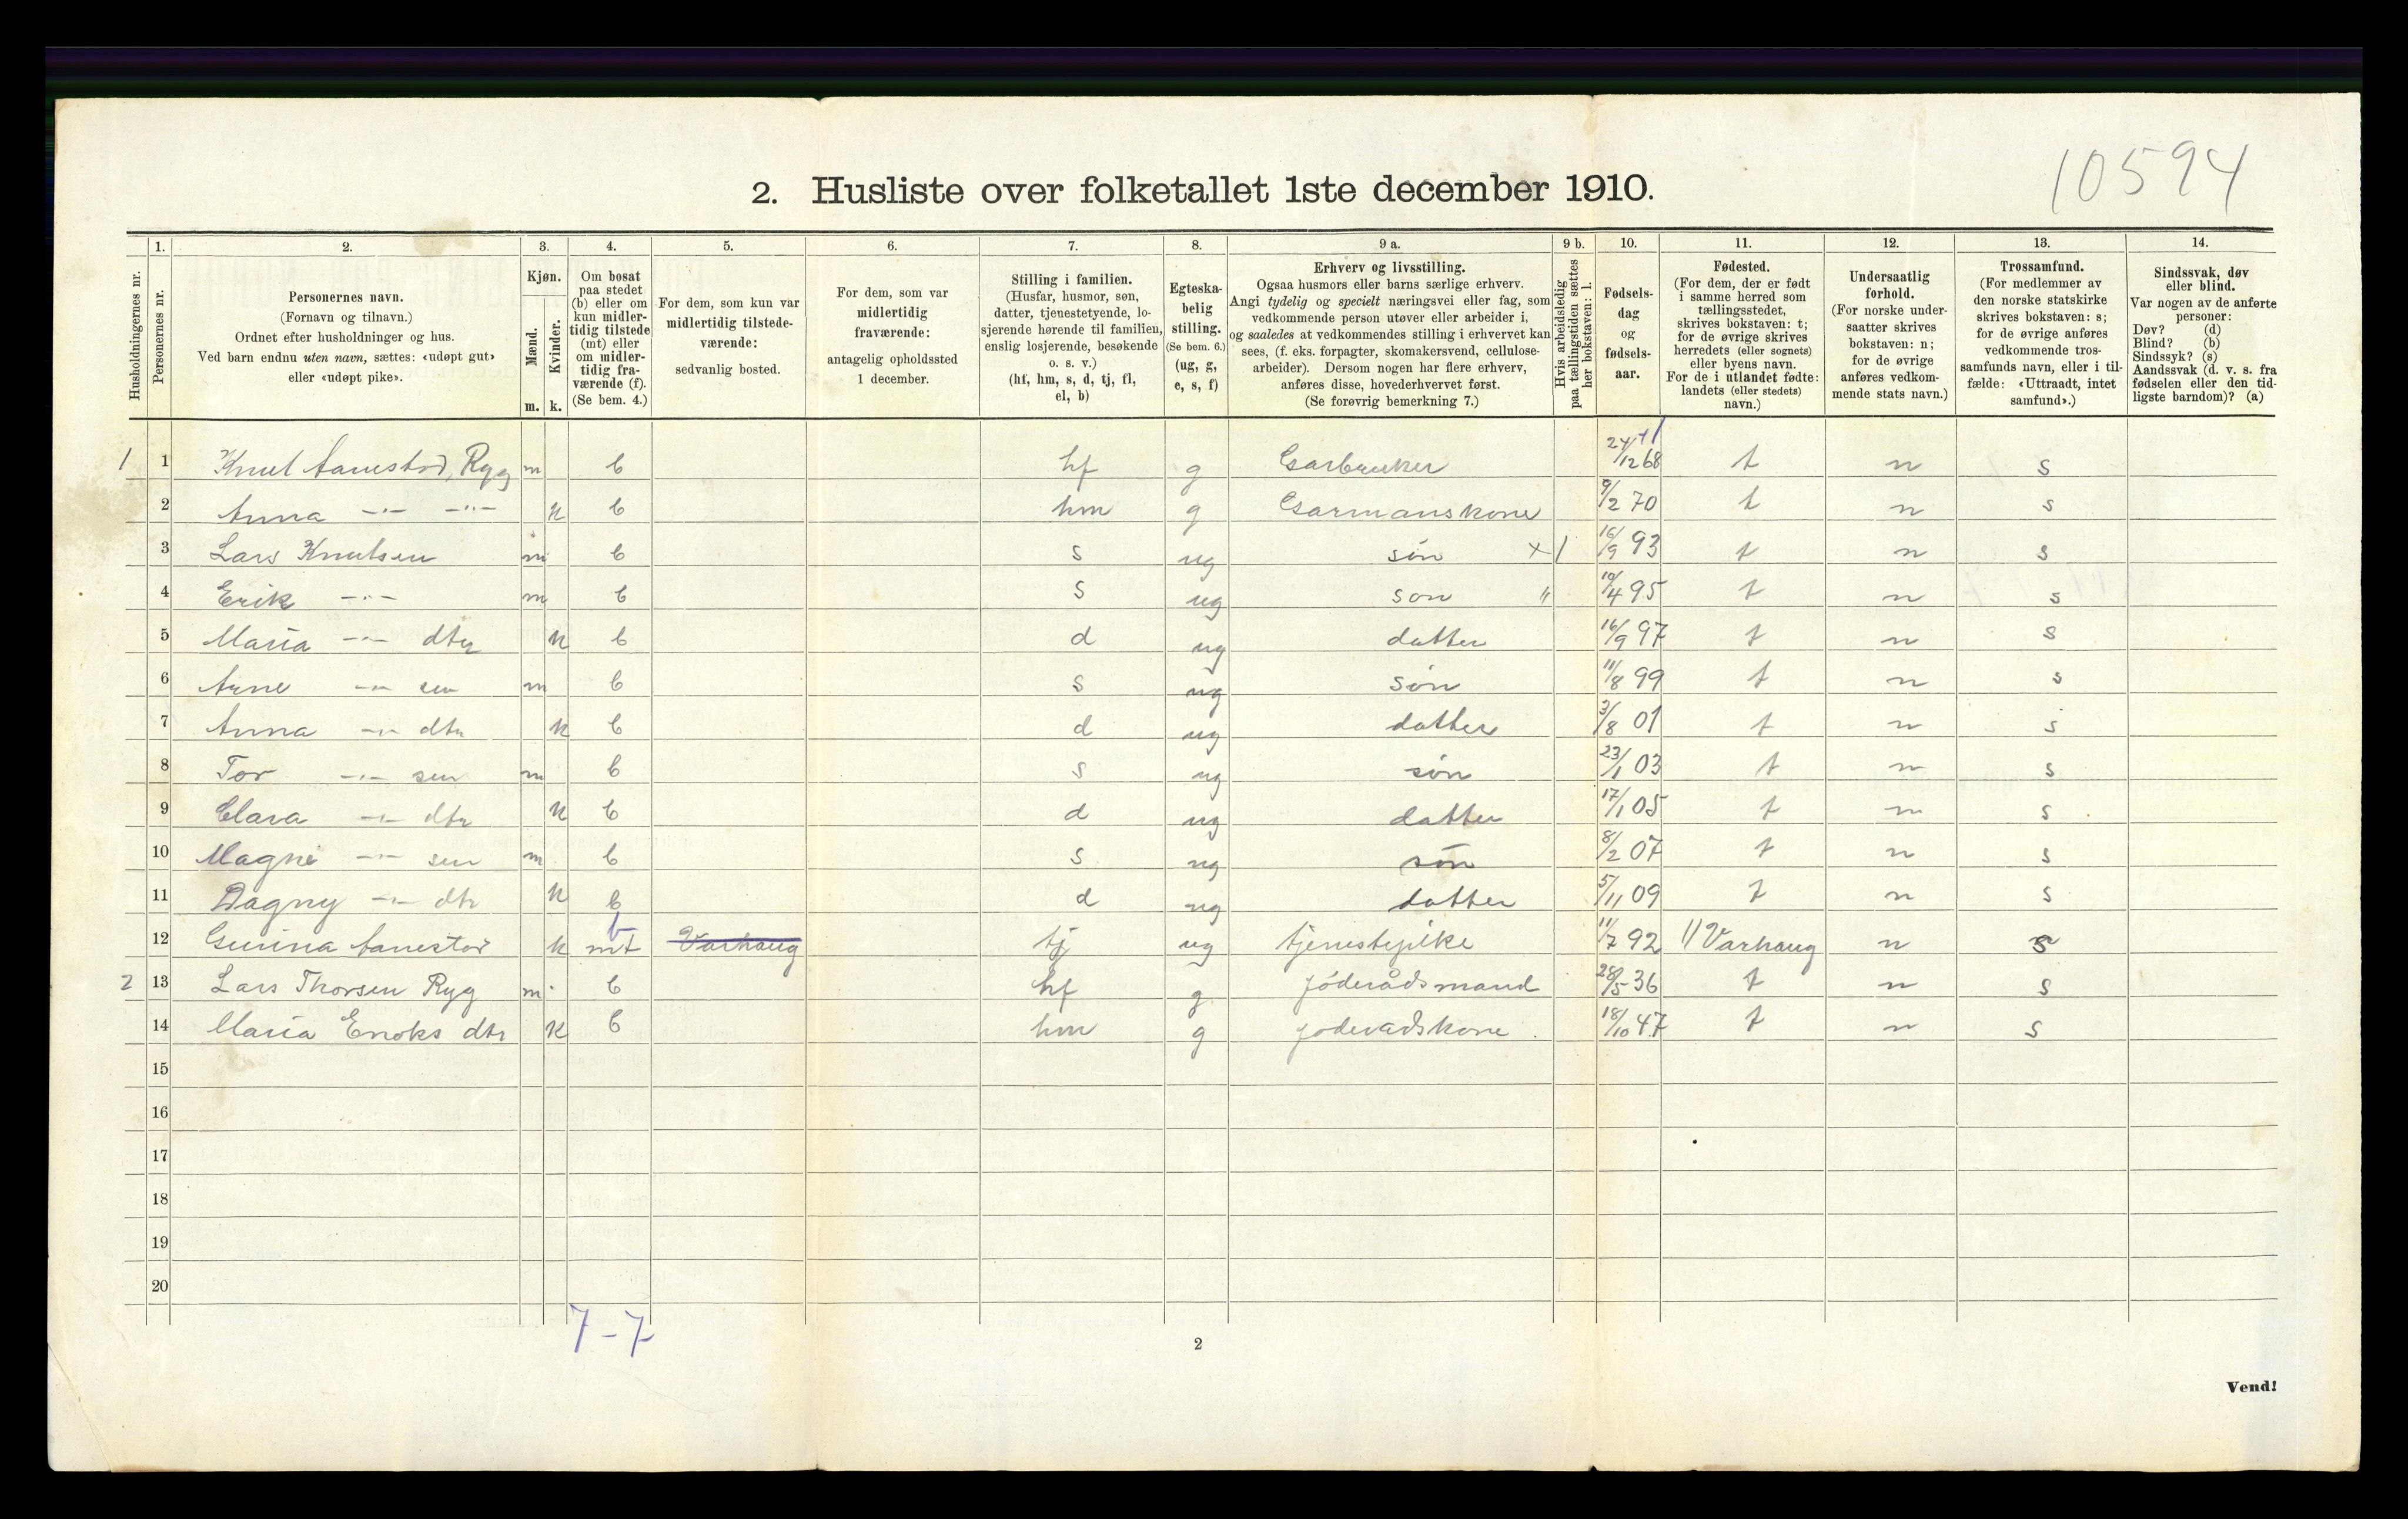 10594
2. Husliste over folketallet 1ste december 1910.
1. 2. 3. 4. 5. 6. 7. 8. 9 a. 9 b. 10. 11. 12. 13. 14.
Husholdningernes nr.
Personernes nr.
Personernes navn.
(Fornavn og tilnavn.)
Ordnet efter husholdninger og hus.
Ved barn endnu uten navn, sættes: «udøpt gut»
eller «udøpt pike».
Kjøn.
Mænd.
Kvinder.
m. k.
Om bosat
paa stedet
(b) eller om
kun midler-
tidig tilstede
(mt) eller
om midler-
tidig fra-
værende (f).
(Se bem. 4.)
For dem, som kun var
midlertidig tilstede-
værende:
sedvanlig bosted.
For dem, som var
midlertidig
fraværende:
antagelig opholdssted
1 december.
Stilling i familien.
(Husfar, husmor, søn,
datter, tjenestetyende, lo-
sjerende hørende til familien,
enslig losjerende, besøkende
o. s. v.)
(hf, hm, s, d, tj, fl,
el, b)
Egteska-
belig
stilling.
(Se bem. 6.)
(ug, g,
e, s, f)
Erhverv og livsstilling.
Ogsaa husmors eller barns særlige erhverv.
Angi tydelig og specielt næringsvei eller fag, som
vedkommende person utøver eller arbeider i,
og saaledes at vedkommendes stilling i erhvervet kan
sees, (f. eks. forpagter, skomakersvend, cellulose-
arbeider). Dersom nogen har flere erhverv,
anføres disse, hovederhvervet først.
(Se forøvrig bemerkning 7.)
Hvis arbeidsledig
paa tællingstiden sættes
her bokstaven: l.
Fødsels-
dag
og
fødsels-
aar.
Fødested.
(For dem, der er født
i samme herred som
tællingsstedet,
skrives bokstaven: t;
for de øvrige skrives
herredets (eller sognets)
eller byens navn.
For de i utlandet fødte:
landets (eller stedets)
navn.)
Undersaatlig
forhold.
(For norske under-
saatter skrives
bokstaven: n;
for de øvrige
anføres vedkom-
mende stats navn.)
Trossamfund.
(For medlemmer av
den norske statskirke
skrives bokstaven: s;
for de øvrige anføres
vedkommende tros-
samfunds navn, eller i til-
fælde: «Uttraadt, intet
samfund».)
Sindssvak, døv
eller blind.
Var nogen av de anførte
personer:
Døv? (d)
Blind? (b)
Sindssyk? (s)
Aandssvak (d. v. s. fra
fødselen eller den tid-
ligste barndom)? (a)
1 1 Knut Aanestad, Ryg m b hf g Garbruker 24/12 68 t n s
2 Anna -"- -"- k b hm g Garmanskone 9/2 70 t n s
3 Lars Knutsen m b s ug søn x 1 16/9 93 t n s
4 Erik -"- m b s ug søn " 10/4 95 t n s
5 Maria -"- dtr k b d ug datter 16/9 97 t n s
6 Arne -"- sen m b s ug søn 11/8 99 t n s
7 Anna -"- dtr k b d ug datter 3/8 01 t n s
8 Tor -"- sen m b s ug søn 23/1 03 t n s
9 Clara -"- dtr k b d ug datter 17/1 05 t n s
10 Magne -"- sen m b s ug søn 8/2 07 t n s
11 Dagny -"- dtr k b d ug datter 5/11 09 t n s
12 Gurina Aanestad k mt b Varhaug tj ug tjenestepike 11/7 92 Varhaug n s
2 13 Lars Thorsen Ryg m b hf g føderådsmand 28/5 36 t n s
14 Maria Enoks dtr k b hm g føderådskone 18/10 47 t n s
15
16
17
18
19
20
7-7
2
Vend!